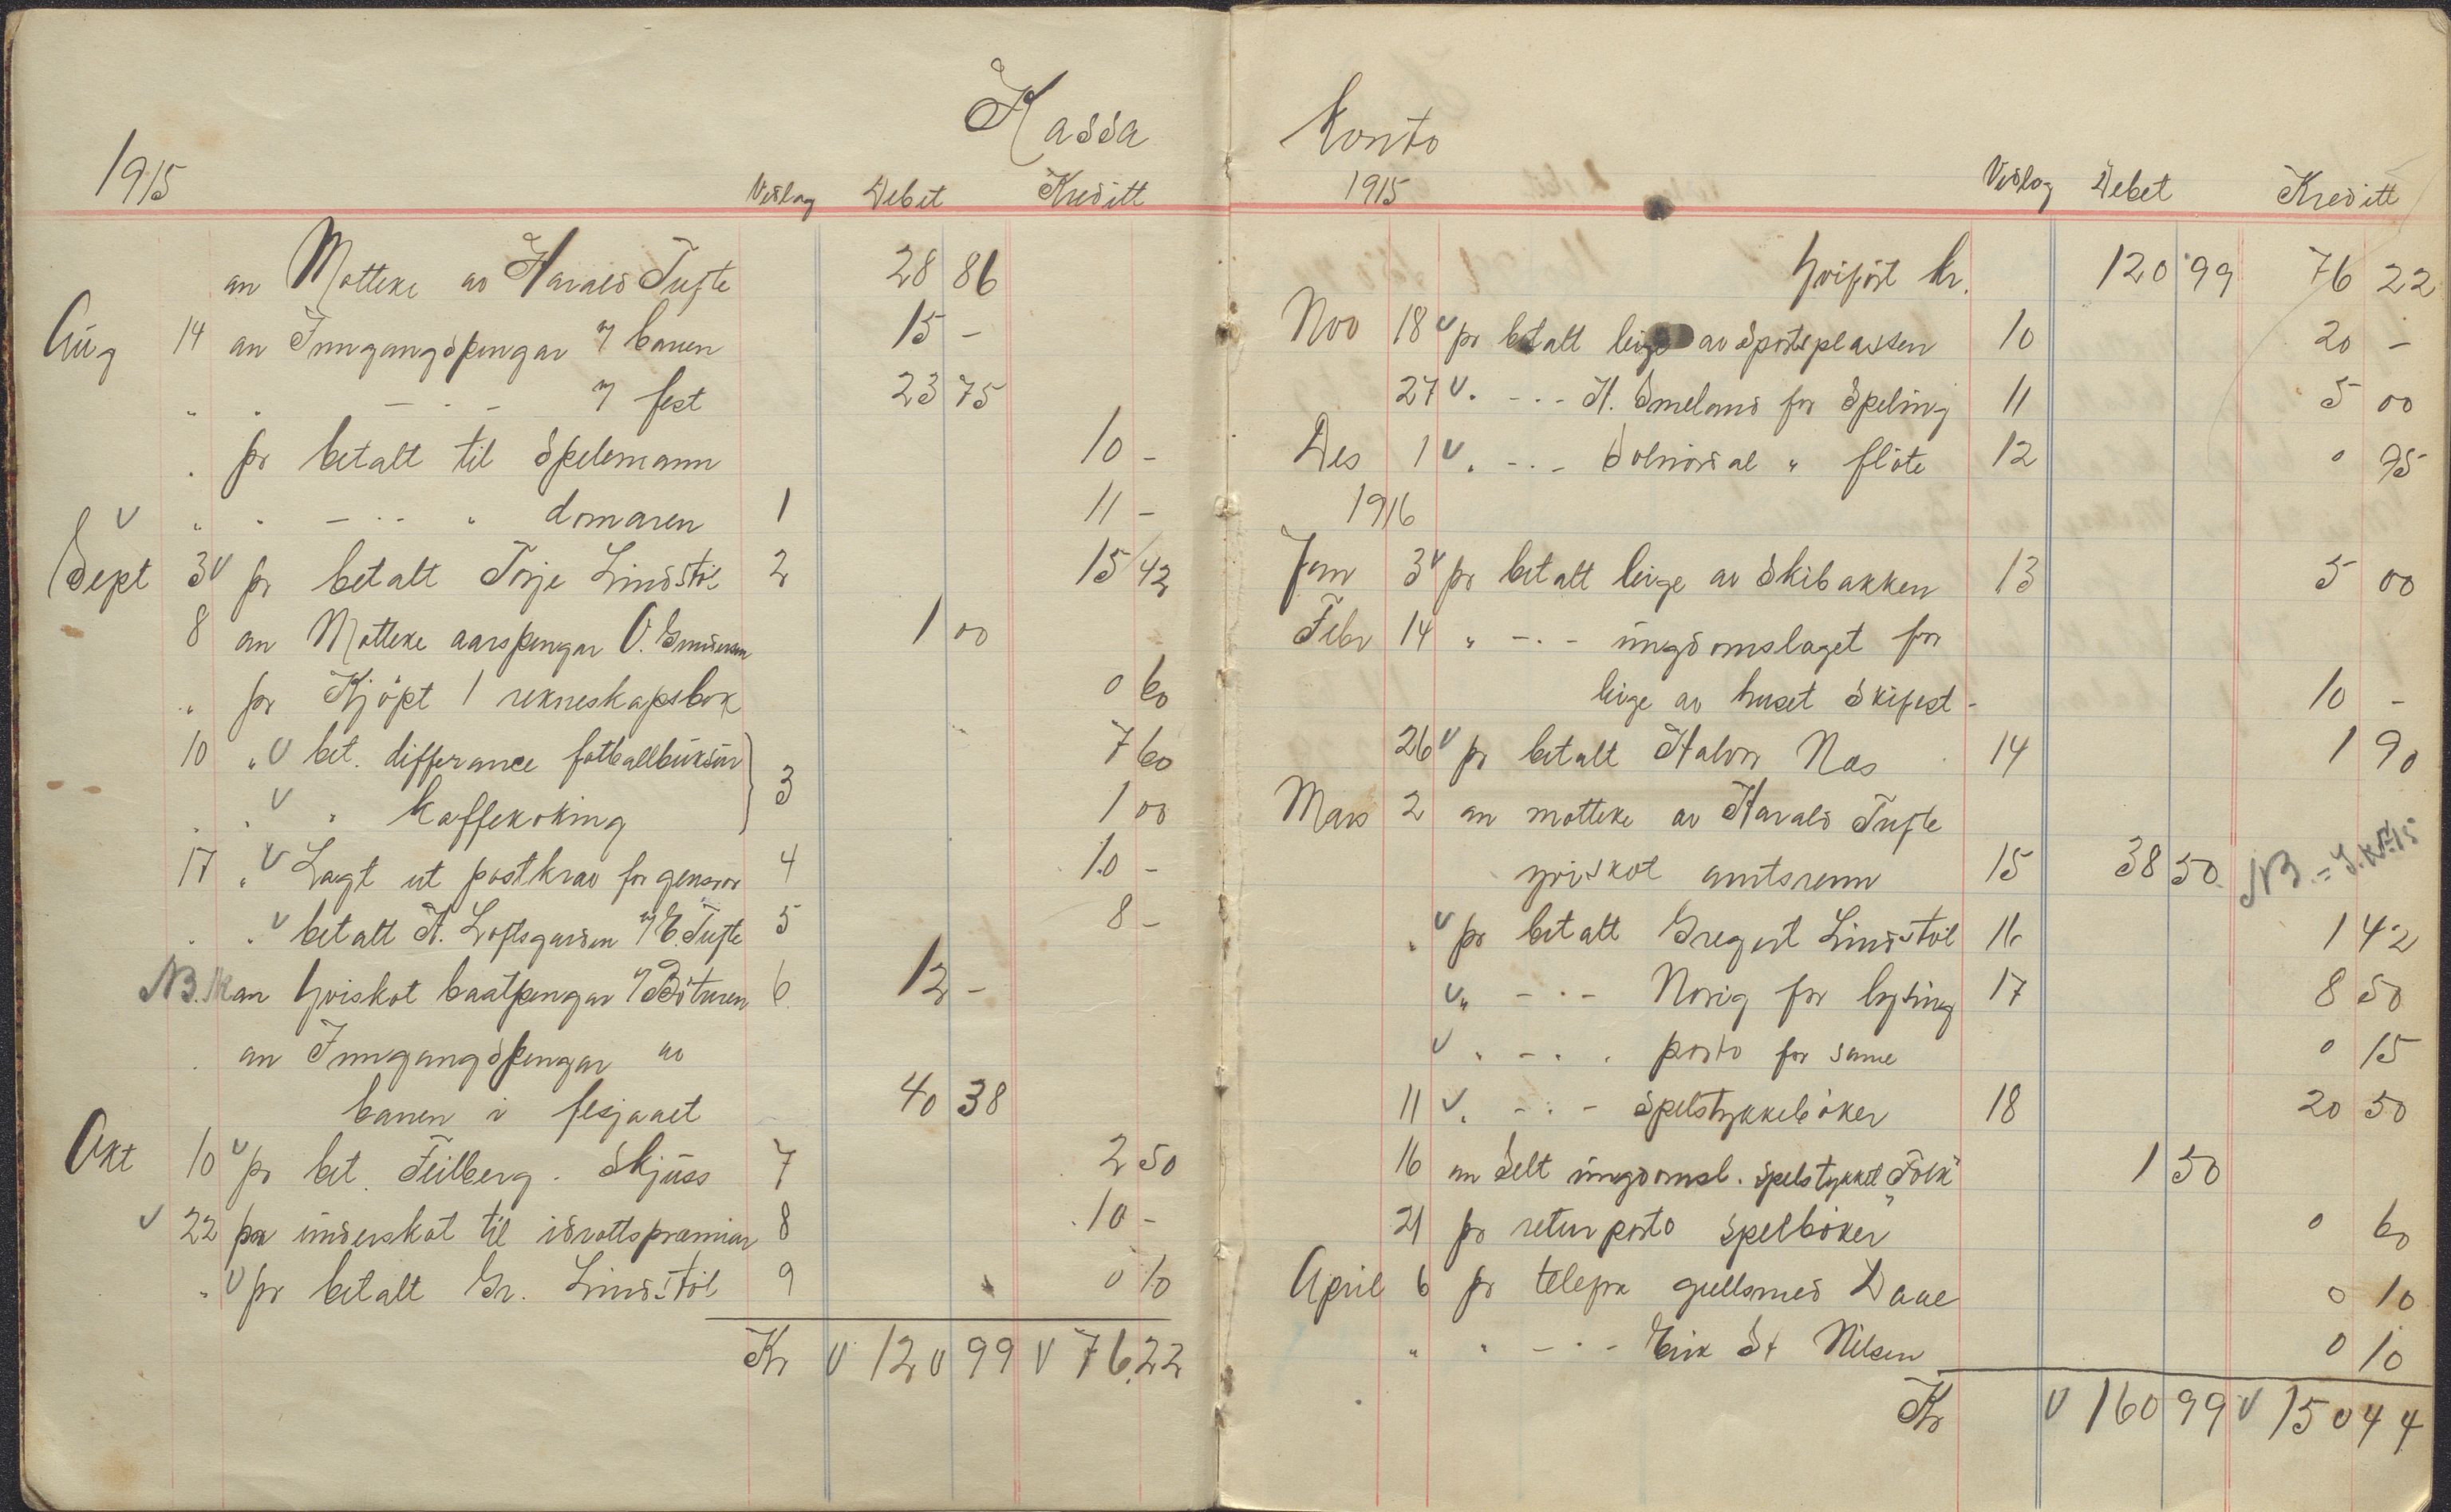 Kassa
1915 Vedlag Debet Kreditt
an Motteke av Harald Tufte 28 86
Aug 14 an Inngangspengar banen 15 -
" " - " - fest 23 75
" pr betalt til Spelemann 10 -
v " " - " - " domaren 1 11 -
Sept 3 v pr betalt Torje Lindstöl 2 15 42
8 an Motteke aarspengar O. 1 00
" pr Kjöpt 1 rekneskapsbok 0 60
10 " v bet. differance fotballbuksur 3 7 60
" " v " kaffekoking 1 00
17 " v Lagt ut postkrav for gensror 4 10 -
" " v betalt A. Loftsgarden E. Tufte 5 8 -
NB. an yviskot baatpengar Böturen 6 12 -
" an Inngangspengar av
banen i flesjaaet 40 38
Okt 10 v pr bet. Feilberg. Skjuss 7 2 50
v 22 pr underskot til idrottspræmiar 8 10 -
" v pr betalt Gr. Lindstöl 9 0 10
Kr v 120 99 v 76,22
Konto
1915 Vedlag Debet Kreditt
yviført kr. 120 99 76 22
Nov 18 v pr betalt leige av Sportsplassen 10 20 -
27 v " - " - H. Smeland for Speling 11 5 00
Des 1 v " - " - Solnördal " flöte 12 0 95
1916
Jan 3 v pr betalt leige av Skibakken 13 5 00
Febr 14 " - " - ungdomslaget for
leige av huset Skifest - 10 -
26 v pr betalt Halvor Nas 14 1 90
Mars 2 an motteke av Harald Tufte
yviskot amtsrenn 15 38 50 NB.
" v pr betalt Gregert Lindstöl 16 1 42
v " - " - Norig for lysing 17 8 50
v " - " " porto for same 0 15
11 v " - " - Spelstykkeböker 18 20 50
16 an Selt ungdomsl. Spelstykket "Folk" 1 50
21 pr retur porto spelböker 0 60
April 6 pr telefon gullsmed Daae 0 10
" " - " - Eirik St Nilsen 0 10
Kr v 160 99 v 150 44